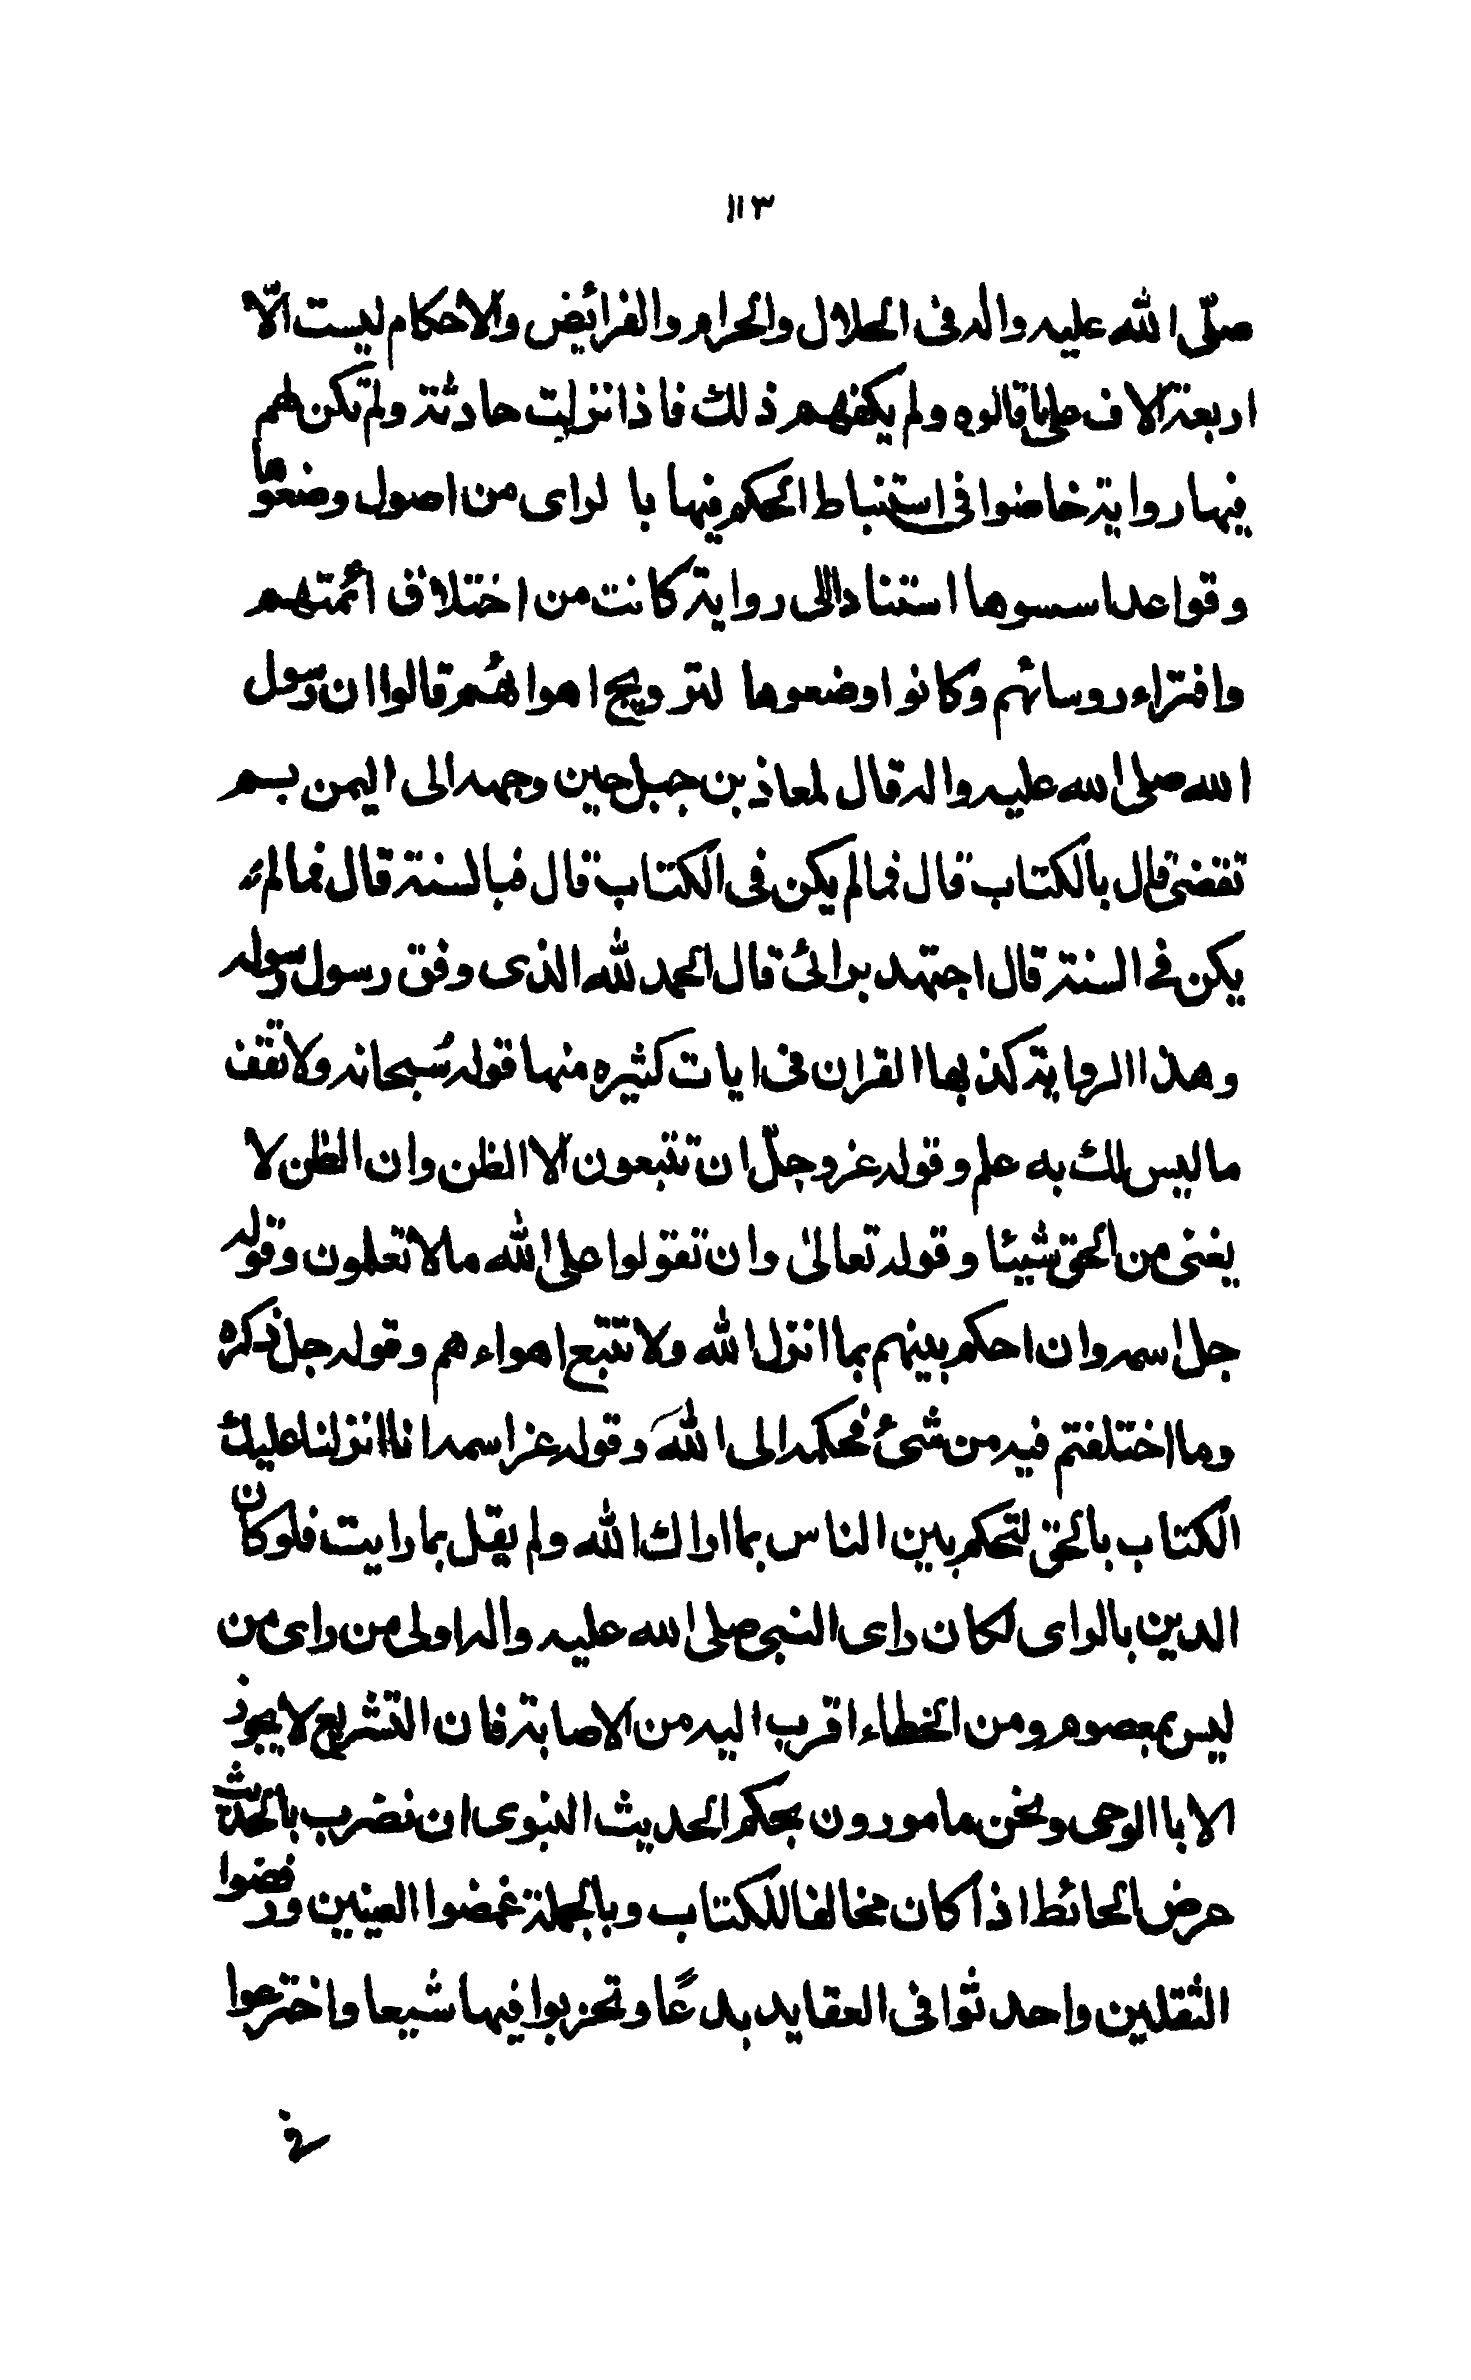 ١١٣
صلّى الله عليه واله فى الحلال والحرام والفرائض والاحكام ليست الّا
اربعة آلاف على ما قالوه ولم يكفهم ذلك فاذا نزلت حادثة ولم تكن لهم
فيها رواية خاضوا فى استنباط الحكم فيها بالراى من اصول وضعوها
وقواعد اسسوها استنادا الى رواية كانت من اختلاق ائمتهم
وافتراء روسائهم وكانوا وضعوها لترويج اهوائهم قالوا ان رسول
الله صلى الله عليه واله قال لمعاذ بن جبل حين وجهه الى اليمن بم
تقضى قال بالكتاب قال فما لم يكن فى الكتاب قال فبالسنة قال فما لم
يكن فى السنة قال اجتهد برائى قال الحمد لله الذى وفق رسول رسوله
وهذا الرواية كذبها القران فى ايات كثيره منها قوله سُبحانه ولا تقف
ما ليس لك به علم وقوله عز وجلّ ان تتبعون الا الظن وان الظن لا
يغنى من الحق شيئا وقوله تعالىٰ وان تقولوا على الله ما لا تعلمون وقوله
جل اسمه وان احكم بينهم بما انزل الله ولا تتبع اهواءهم وقوله جل ذكره
وما اختلفتم فيه من شئ فحكمه الى الله وقوله عز اسمه انا انزلنا عليك
الكتاب بالحق لتحكم بين الناس بما اراك الله ولم يقل بما رايت فلو كان
الدين بالراى لكان راى النبى صلى الله عليه واله اولى من راى من
ليس بمعصوم ومن الخطاء اقرب اليه من الاصابة فان التشريع لا يجوز
الا باالوحى ونحن مامورون بحكم الحديث النبوى ان نضرب بالحديث
عرض الحائط اذا كان مخالفا للكتاب وبالجملة غمضوا العينين ورفضوا
الثقلين واحدثوا فى العقايد بدعًا وتحزبوا فيها شيعا واخترعوا
فى